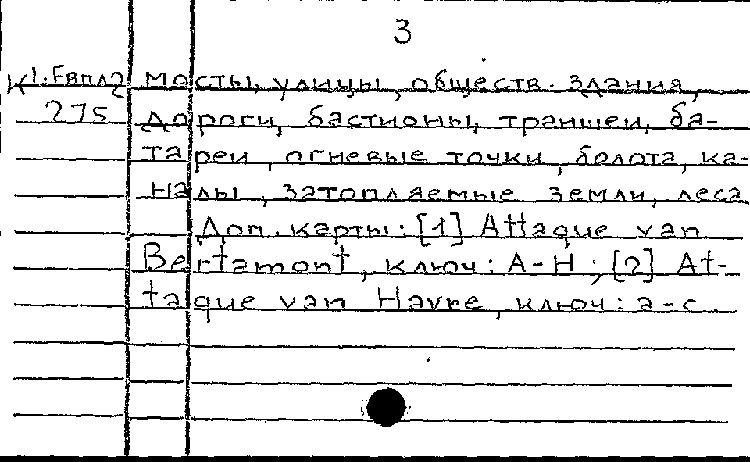 3
К1.Евпл2 мосты, улицы, обществ. здания,
275 дороги, бастионы, траншеи, ба-
тареи, огневые точки, болота, ка-
налы, затопляемые земли, леса
Доп. карты: [1] Attaque van
Bertamont, ключ: A-H; [2] At-
taque van Havre, ключ: a-c